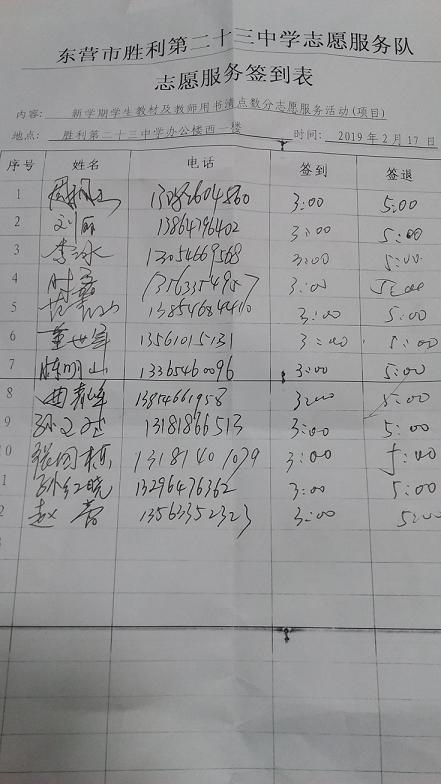 东营市胜利第二十三中学志愿服务队
志愿服务签到表
内容： 新学期学生教材及教师用书清点数分志愿服务活动(项目)
地点： 胜利第二十三中学办公楼西一楼 时间： 2019年2月17日
序号 姓名 电话 签到 签退
1 3:00 5:00
2 刘丽 13864796402 3:00 5:00
3 李冰 13054669568 3:00 5:00
4 3:00 5:00
5 3:00 5:00
6 董世军 13561015131 3:00 5:00
7 陈明山 13365460096 3:00 5:00
8 3:00 5:00
9 孙文 13181866513 3:00 5:00
0 13181401079 3:00 5:00
1 孙红晓 13296476362 3:00 5:00
2 赵 13563352323 3:00 5:00